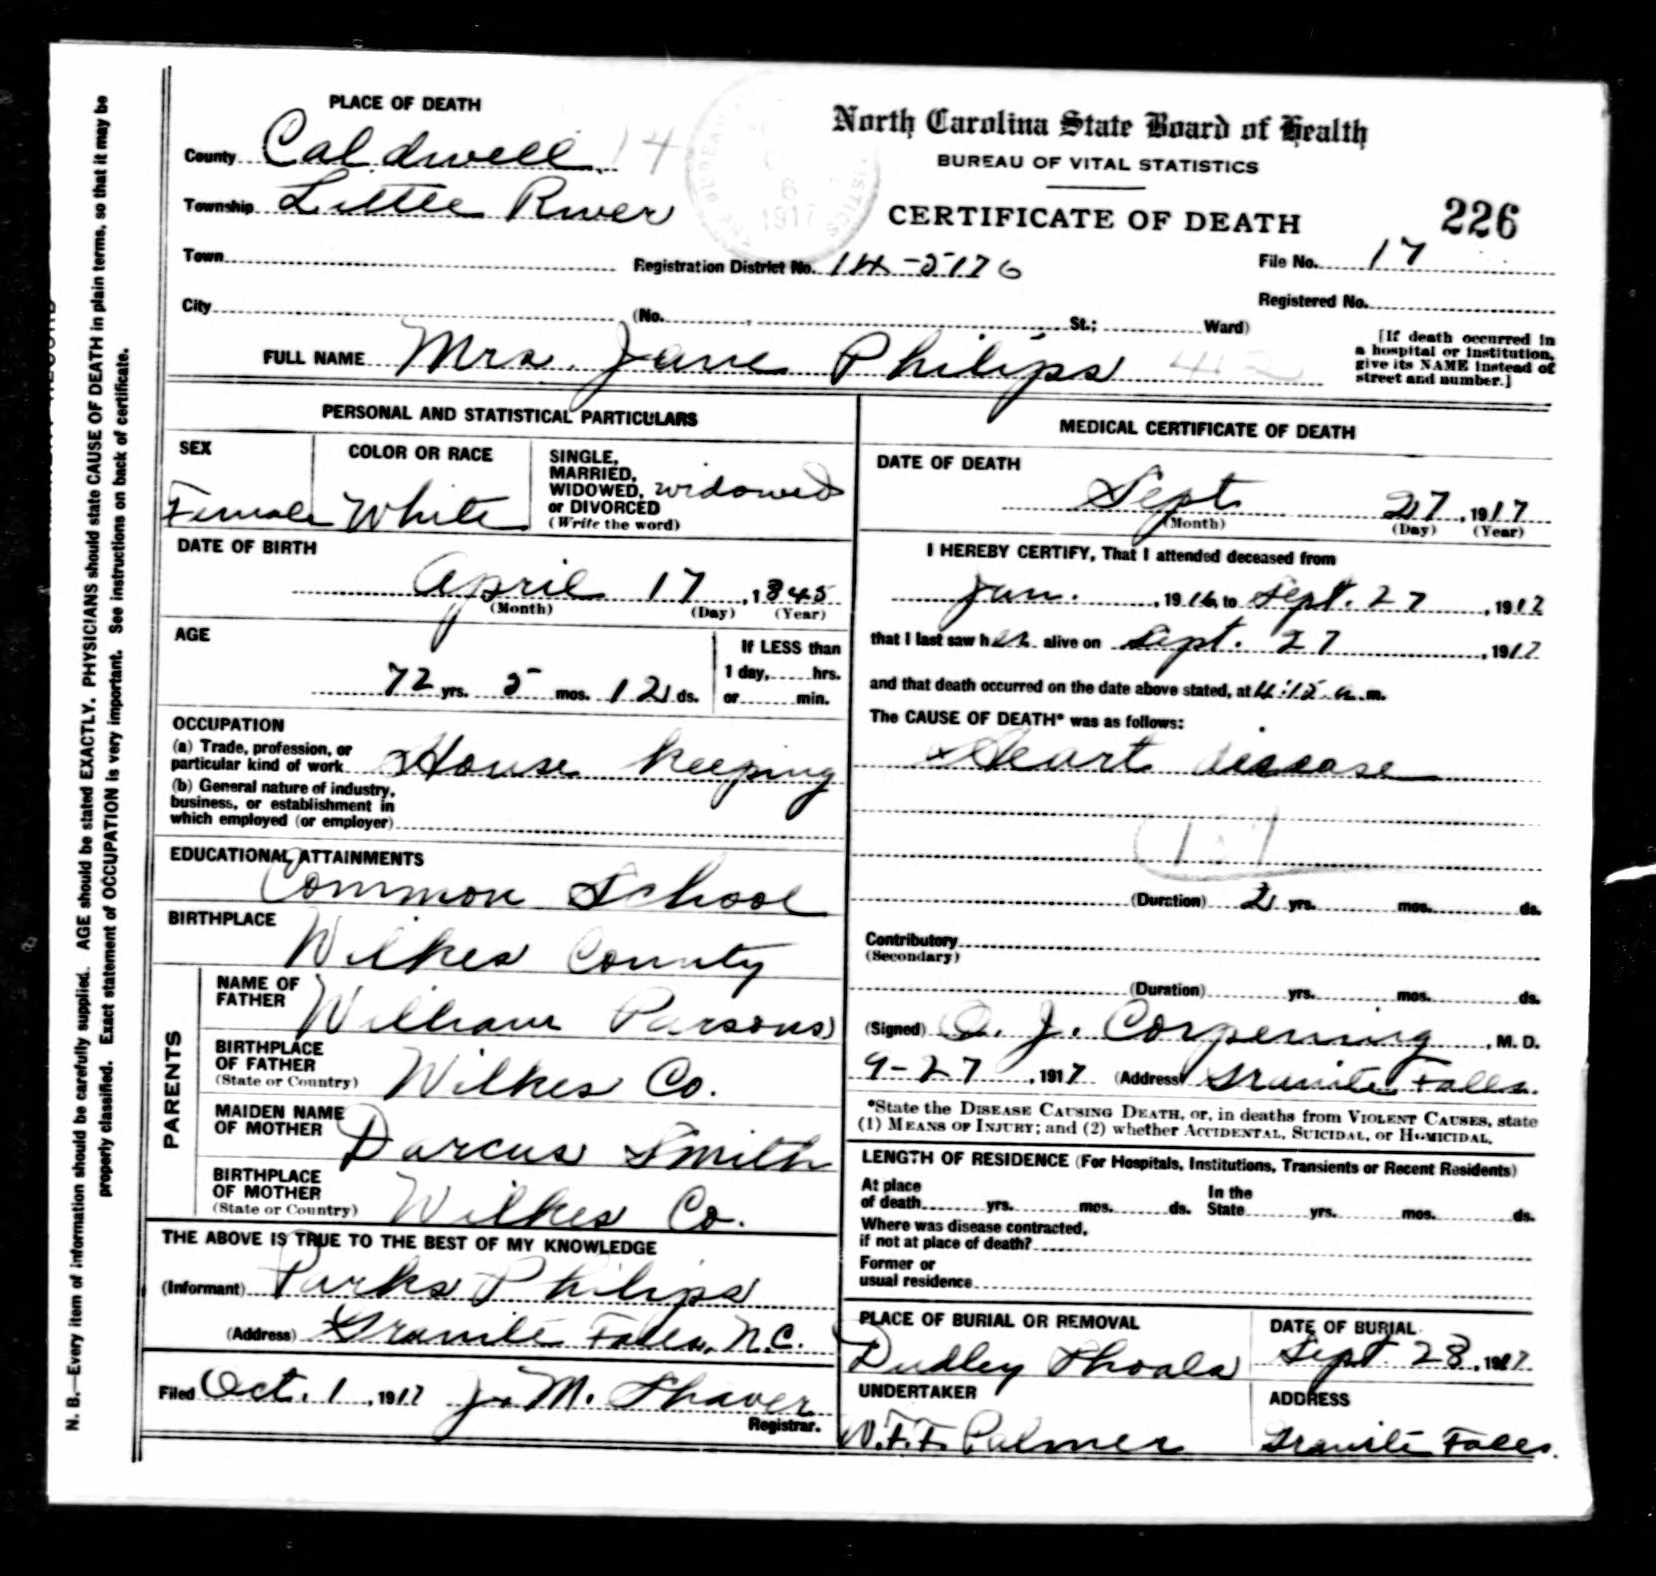 PLACE OF DEATH
County Caldwell 14
Township Little River
Town
City
North Carolina State Board of Health
BUREAU OF VITAL STATISTICS
CERTIFICATE OF DEATH
226
Registration District No. 14-5176
File No. 17
Registered No.
(No. St.; Ward)
[If death occurred in
a hospital or institution,
give its NAME instead of
street and number.]
FULL NAME Mrs. Jane Philips 412
PERSONAL AND STATISTICAL PARTICULARS
SEX
Female
COLOR OR RACE
White
SINGLE,
MARRIED,
WIDOWED, widowed
or DIVORCED
(Write the word)
DATE OF BIRTH
April 17, 1845
(Month) (Day) (Year)
AGE
72 yrs. 5 mos. 12 ds.
If LESS than
1 day, hrs.
or min.
OCCUPATION
(a) Trade, profession, or
particular kind of work House Keeping
(b) General nature of industry,
business, or establishment in
which employed (or employer)
EDUCATIONAL ATTAINMENTS
Common School
BIRTHPLACE
Wilkes County
PARENTS
NAME OF
FATHER William Parsons
BIRTHPLACE
OF FATHER
(State or Country) Wilkes Co.
MAIDEN NAME
OF MOTHER Darcus Smith
BIRTHPLACE
OF MOTHER
(State or Country) Wilkes Co.
THE ABOVE IS TRUE TO THE BEST OF MY KNOWLEDGE
(Informant) Parks Philips
(Address) Granite Falls, N.C.
Filed Oct. 1, 1917 J. M. Shaver
Registrar.
MEDICAL CERTIFICATE OF DEATH
DATE OF DEATH
Sept 27, 1917
(Month) (Day) (Year)
I HEREBY CERTIFY, That I attended deceased from
Jan. , 1916, to Sept. 27, 1917
that I last saw her alive on Sept. 27, 1917
and that death occurred on the date above stated, at 4:15 a.m.
The CAUSE OF DEATH* was as follows:
Heart disease
(Duration) 2 yrs. mos. ds.
Contributory
(Secondary)
(Duration) yrs. mos. ds.
(Signed) O. J. Corpening, M. D.
9-27, 1917 (Address) Granite Falls.
*State the DISEASE CAUSING DEATH, or, in deaths from VIOLENT CAUSES, state
(1) MEANS OF INJURY; and (2) whether ACCIDENTAL, SUICIDAL, or HOMICIDAL.
LENGTH OF RESIDENCE (For Hospitals, Institutions, Transients or Recent Residents)
At place
of death yrs. mos. ds.
In the
State yrs. mos. ds.
Where was disease contracted,
if not at place of death?
Former or
usual residence
PLACE OF BURIAL OR REMOVAL
Dudley Shoals
DATE OF BURIAL
Sept 28, 1917
UNDERTAKER
W.F.F. Palmer
ADDRESS
Granite Falls.
N. B.—Every item of information should be carefully supplied. AGE should be stated EXACTLY. PHYSICIANS should state CAUSE OF DEATH in plain terms, so that it may be
properly classified. Exact statement of OCCUPATION is very important. See instructions on back of certificate.